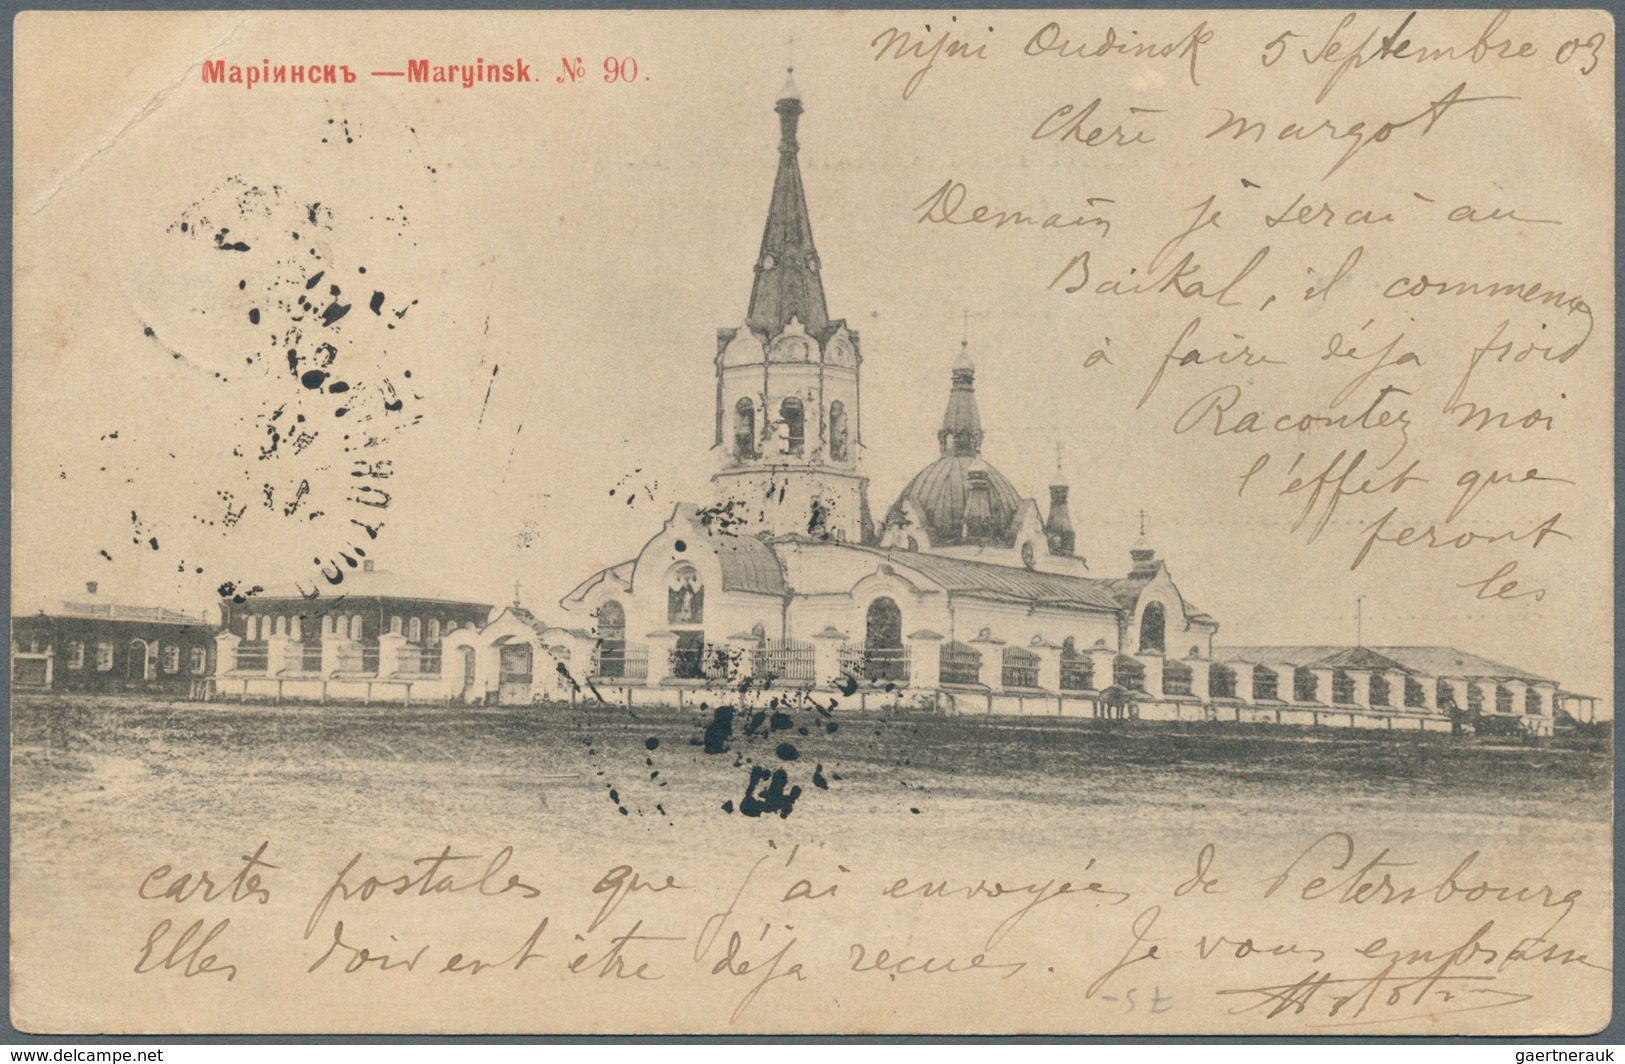 Маріинскъ — Maryinsk. № 90.
Nijni Oudinsk 5 Septembre 03
Chère Margot
Demain je serai au
Baikal, il commence
à faire déja froid
Racontez moi
l'éffet que
feront
les
cartes postales que j'ai envoyées de Petersbourg
Elles doivent être déja reçues. Je vous embrasse
www.delcampe.net
gaertnerauk